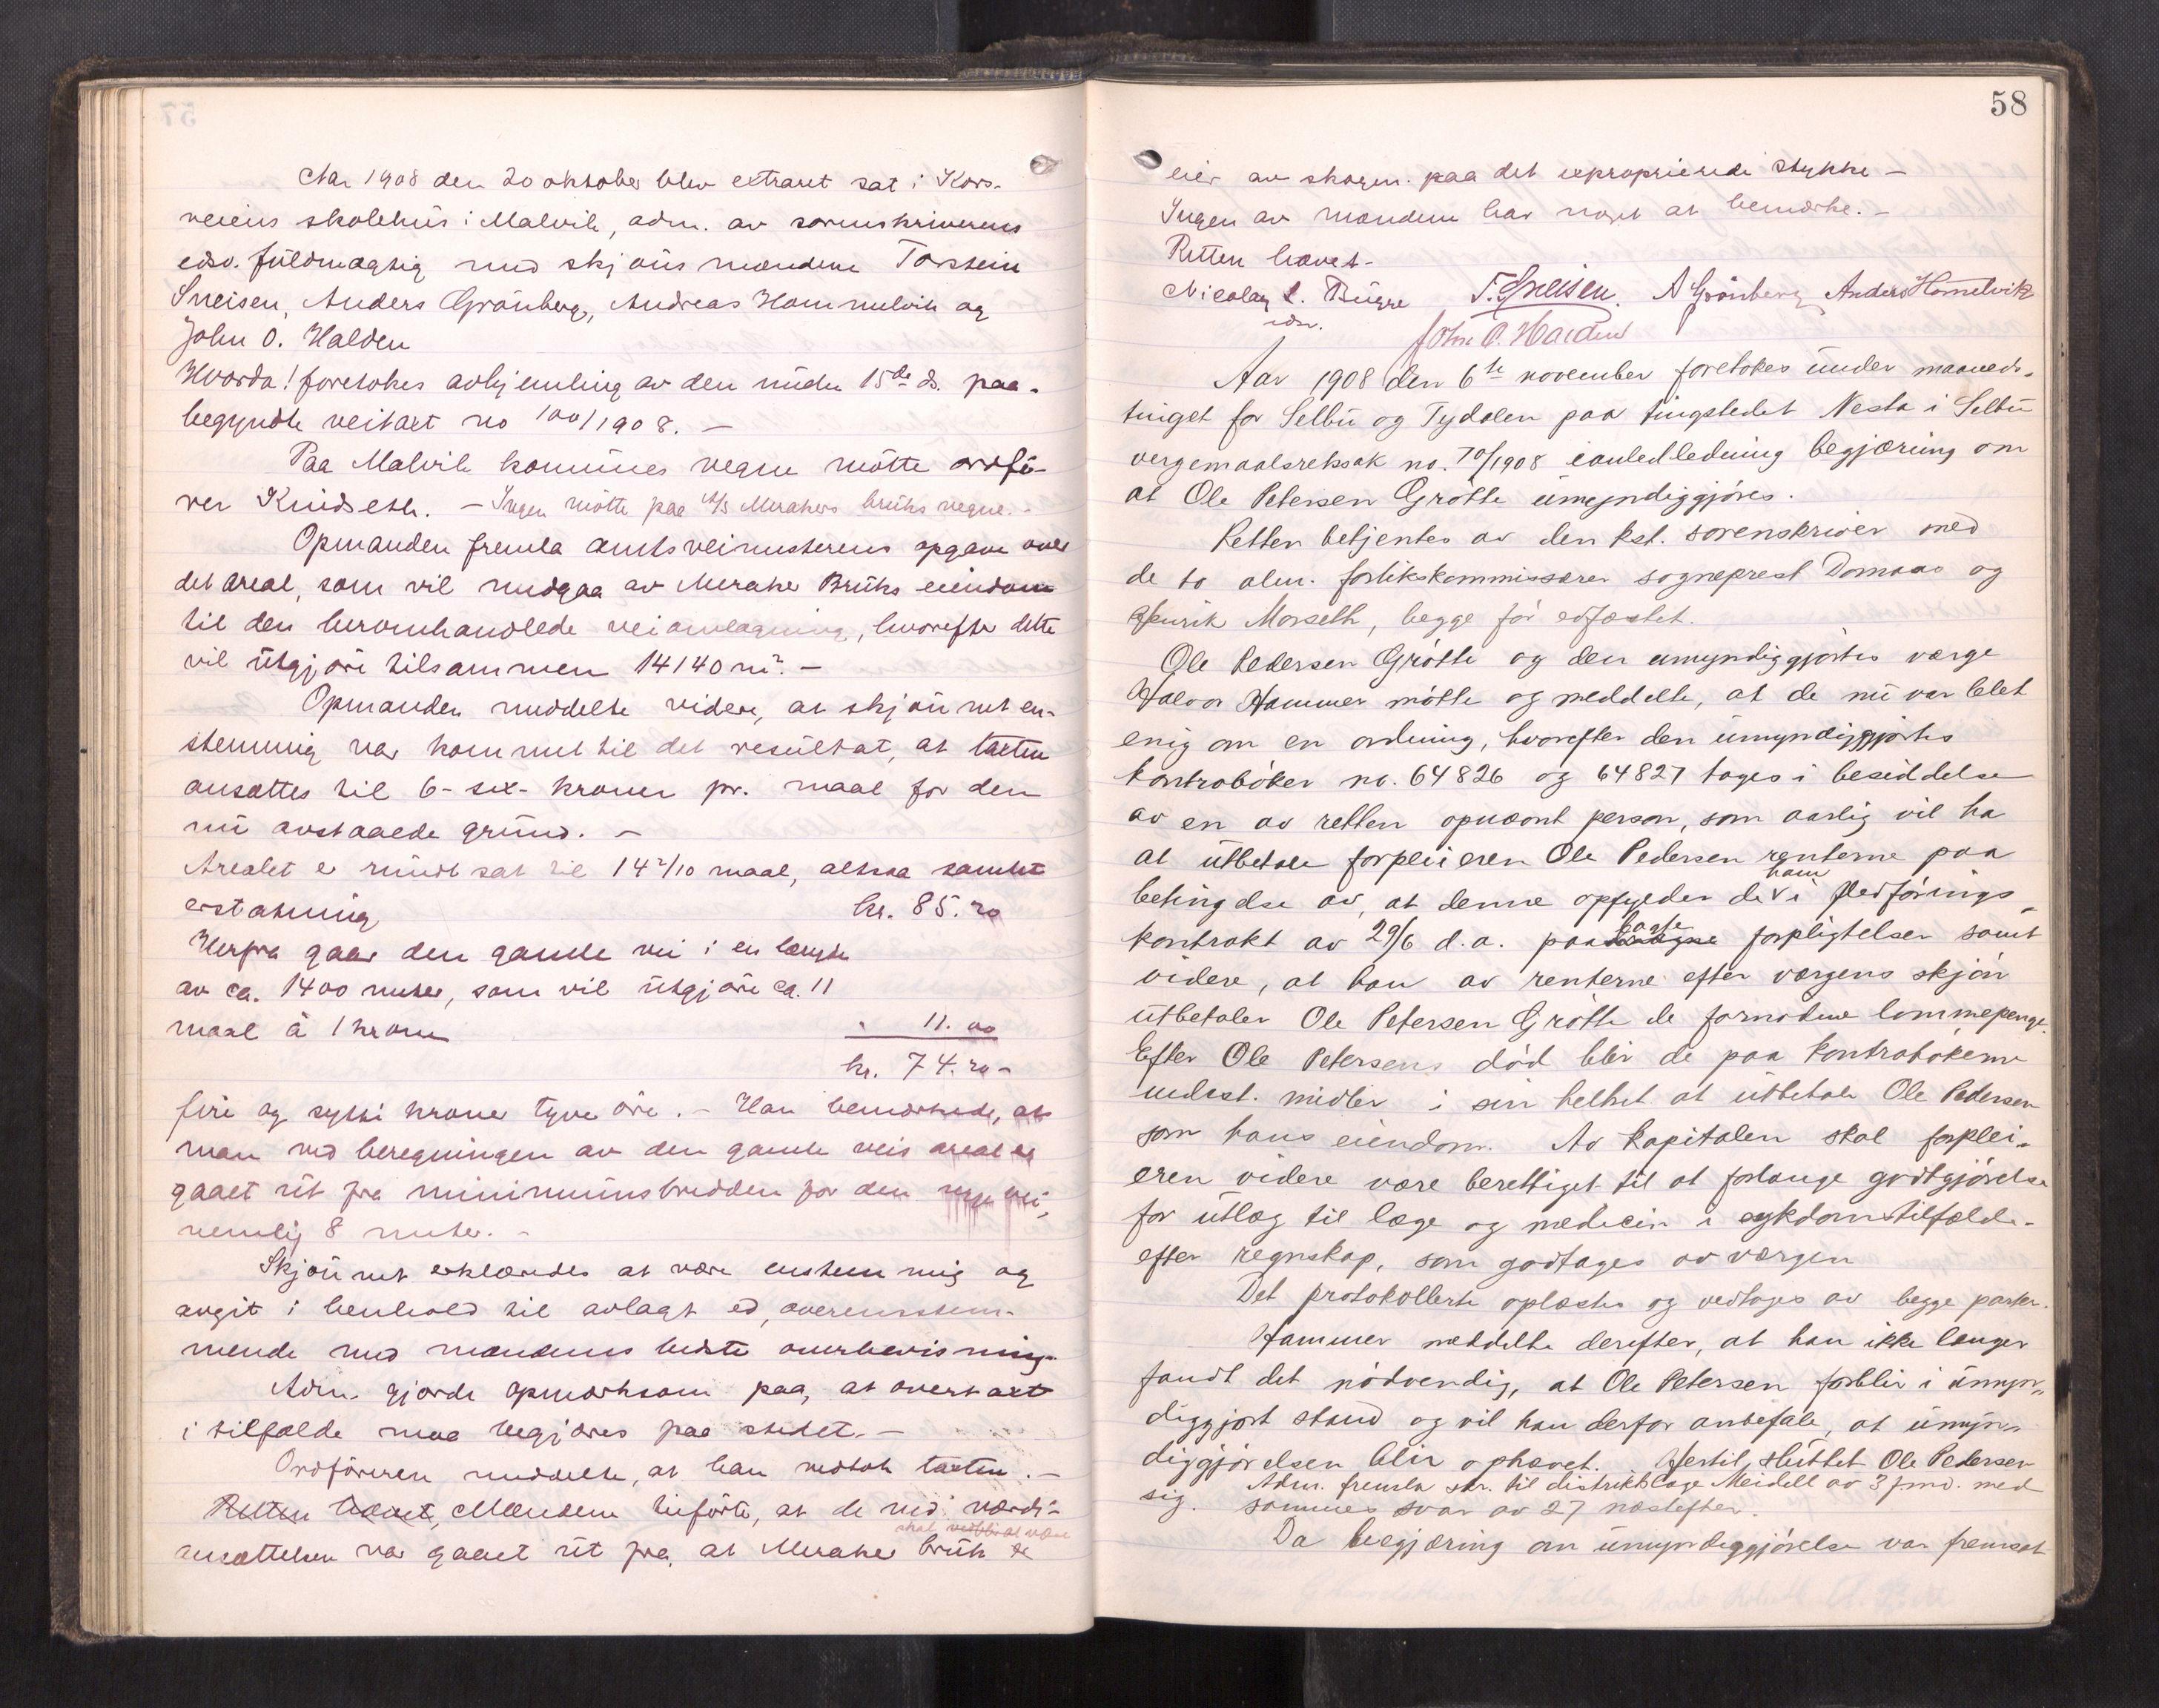 Aar 1908 den 20 oktober blev extraret sat i Kors-
veiens skolehus i Malvik, adm. av sorenskriverens
edsv. fuldmægtig med skjønsmændene Torstein
Sneisen, Anders Grönberg, Andreas Hommelvik og
John O. Halden
Hvorda! foretokes avhjemling av den under 15de ds. paa-
begyndte veitaxt no 100/1908. –
Paa Malvik kommunes vegne mötte ordfö-
rer Kundseth. – Ingen mötte paa A/S Merakers bruks vegne. –
Opmanden fremla amtsveimesterens opgave over
det areal, som vil medgaa av Meraker Bruks eiendom
til den heromhandlede veiomlægning, hvorefter dette
vil utgjöre tilsammen 14140 m². –
Opmanden meddelte videre, at skjönnet en-
stemmig var kommet til det resultat, at taxten
ansættes til 6 - sex - kroner pr. maal for den
nu avstaaede grund. –
Arealet er rundt sat til 14 2/10 maal, altsaa samlet
erstatning kr. 85.20
Herfra gaar den gamle vei i en længde
av ca. 1400 meter, som vil utgjöre ca. 11
maal à 1 krone " 11.00
kr. 74.20 –
fire og sytti kroner tyve öre. – Han bemærkede, at
man ved beregningen av den gamle veis areal er
gaaet ut fra minimumsbredden for den nye vei,
nemlig 8 meter. –
Skjönnet erklæredes at være enstemmig og
avgit i henhold til avlagt ed, overensstem-
mende med mændenes bedste overbevisning.
Adm. gjorde opmerksom paa, at overtaxt
i tilfælde maa begjæres paa stedet. –
Ordföreren meddelte, at han vedtok taxten. –
Retten hævet, Mændene tilförte, at de ved værdi-
skal vedbli at være
ansættelsen var gaaet ut fra, at Meraker bruk
57
58
eier av skogen paa det exproprierede stykke –
Ingen av mændene har noget at bemærke. –
Retten hævet –
Nicolay L. Bugge T. Sneisen. A Grönberg Anders Homelvik
edsv. John O. Halden
Aar 1908 den 6te november foretokes under maaneds-
tinget for Selbu og Tydalen paa tingstedet Nesta i Selbu
vergemaalsretssak no. 70/1908 i anledledning begjæring om
at Ole Petersen Grötte umyndiggjöres.
Retten betjentes av den kst. sorenskriver med
de to alm. forlikskommissærer sogneprest Domaas og
Henrik Morseth, begge för edfæstet.
Ole Pedersen Grötte og den umyndiggjortes værge
Halvor Hammer mötte og meddelte, at de nu var blet
enig om en ordning, hvorefter den umyndiggjortes
kontraböker no. 64826 og 64827 tages i besiddelse
av en av retten opnævnt person, som aarlig vil ha
at utbetale forpleieren Ole Pedersen renterne paa
betingelse av, at denne opfylder de ham i flodförings-
kontrakt av 29/6 d.a. paa hvilende forpligtelser samt
videre, at han av renterne efter værgens skjön
utbetaler Ole Petersen Grötte de fornödne lommepenge.
Efter Ole Petersens död blir de paa kontrabökerne
indest. midler i sin helhet at utbetale Ole Pedersen
som hans eiendom. Av kapitalen skal forplei-
eren videre være berettiget til at forlange godtgjörelse
for utlæg til læge og medicin i sykdomstilfælde
efter regnskap, som godtages av værgen
Det protokollerte oplæstes og vedtoges av begge parter.
Hammer meddelte derefter, at han ikke længer
fandt det nödvendig, at Ole Petersen forblir i umyn-
diggjort stand og vil han derfor anbefale, at umyn-
diggjörelsen blir ophævet. Hertil sluttet Ole Pedersen
sig. Adm. fremla skr. til distriktslæge Meidell av 3 f.md. med
sammes svar av 27 næstefter.
Da begjæring om umyndiggjörelse var fremsat